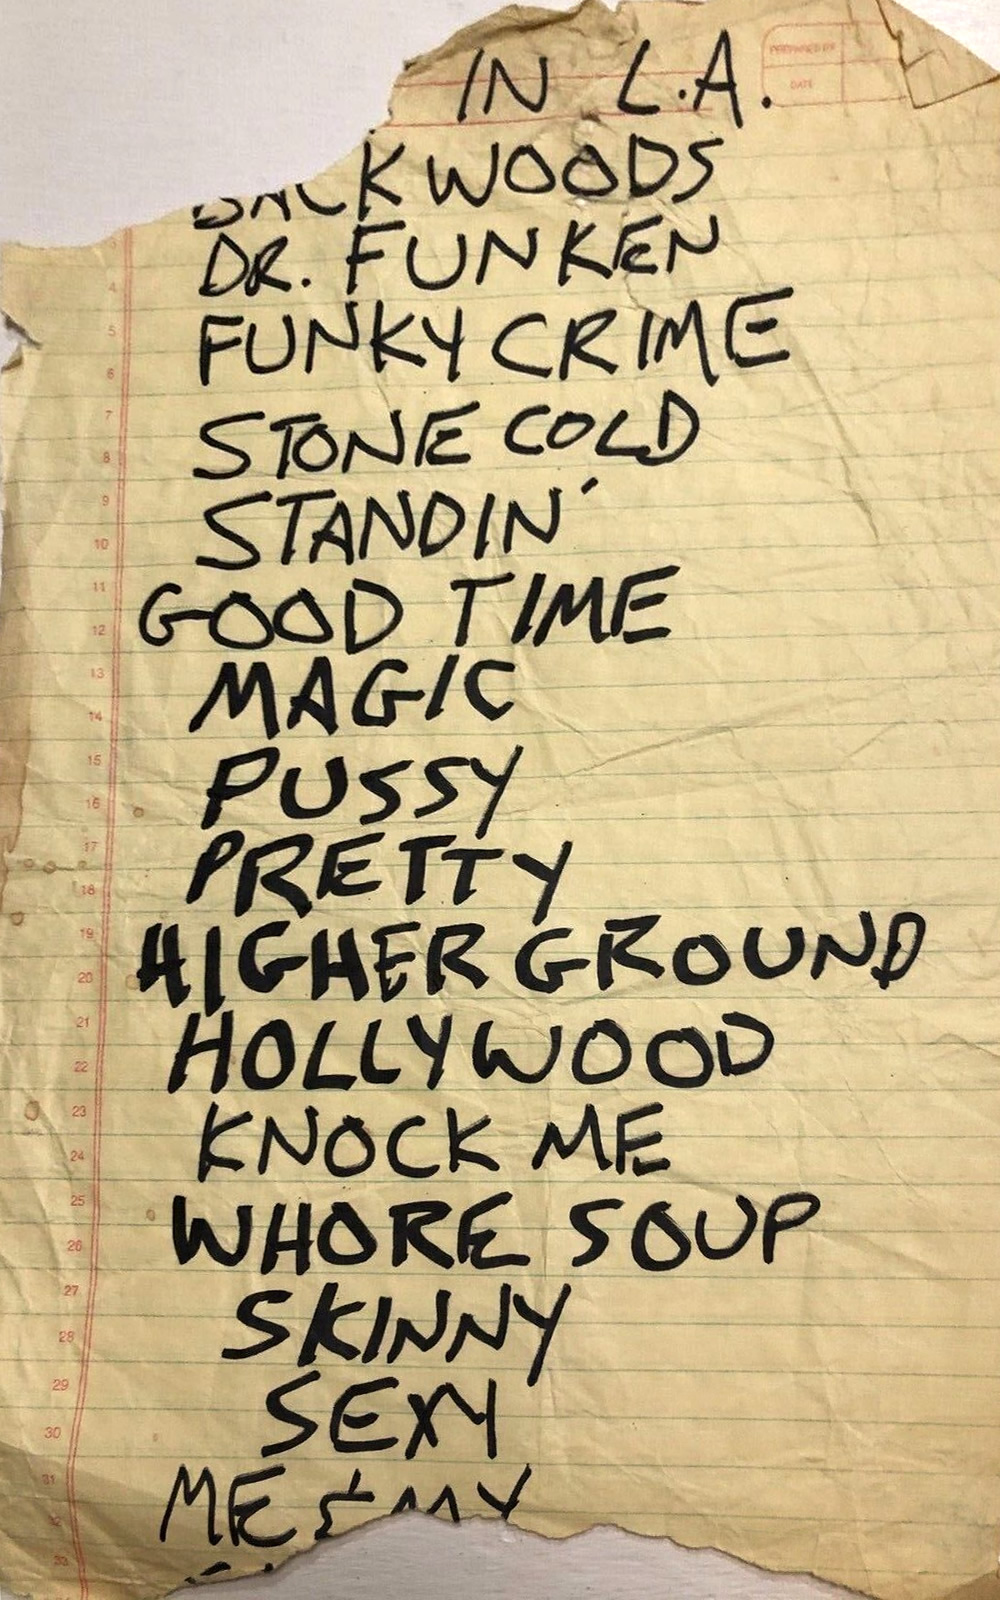 PREPARED BY
DATE
IN L.A.
BACKWOODS
DR. FUNKEN
FUNKY CRIME
STONE COLD
STANDIN'
GOOD TIME
MAGIC
PUSSY
PRETTY
HIGHER GROUND
HOLLYWOOD
KNOCK ME
WHORE SOUP
SKINNY
SEXY
ME & MY
3
4
5
6
7
8
9
10
11
12
13
14
15
16
17
18
19
20
21
22
23
24
25
26
27
28
29
30
31
33